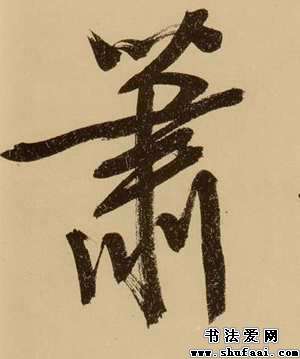 萧
书法爱网
www.shufaai.com